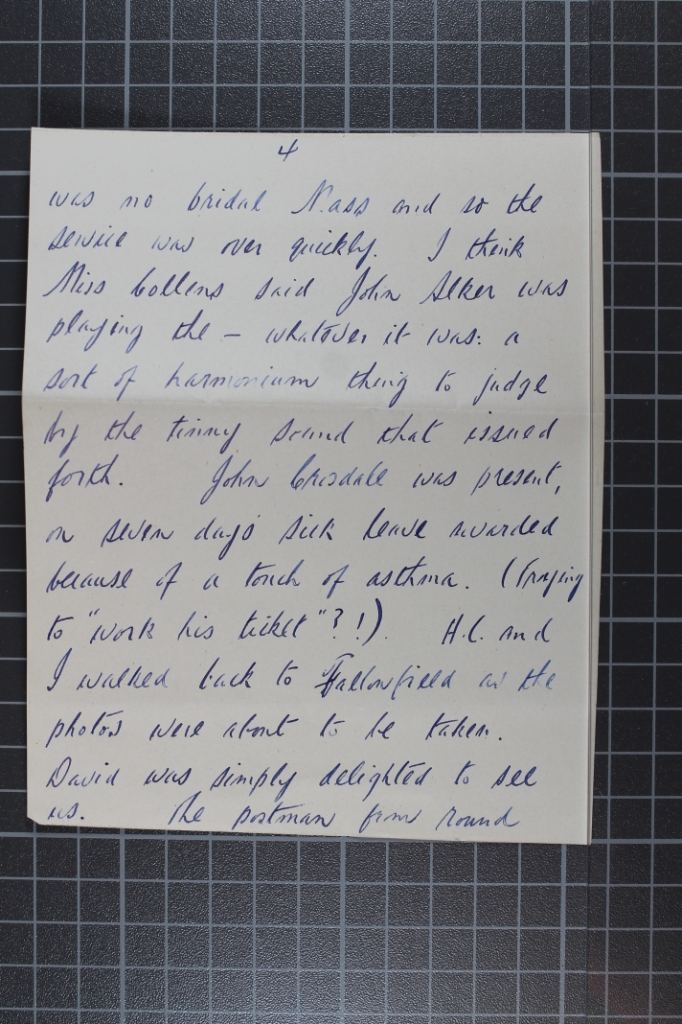 4
was no bridal Mass and so the
service was over quickly. I think
Miss Collens said John Alker was
playing the – whatever it was: a
sort of harmonium thing to judge
by the tinny sound that issued
forth. John Crisdale was present,
on seven days' sick leave awarded
because of a touch of asthma. (Trying
to "work his ticket"?!) H.C. and
I walked back to Fallowfield as the
photos were about to be taken.
David was simply delighted to see
us. The postman from round